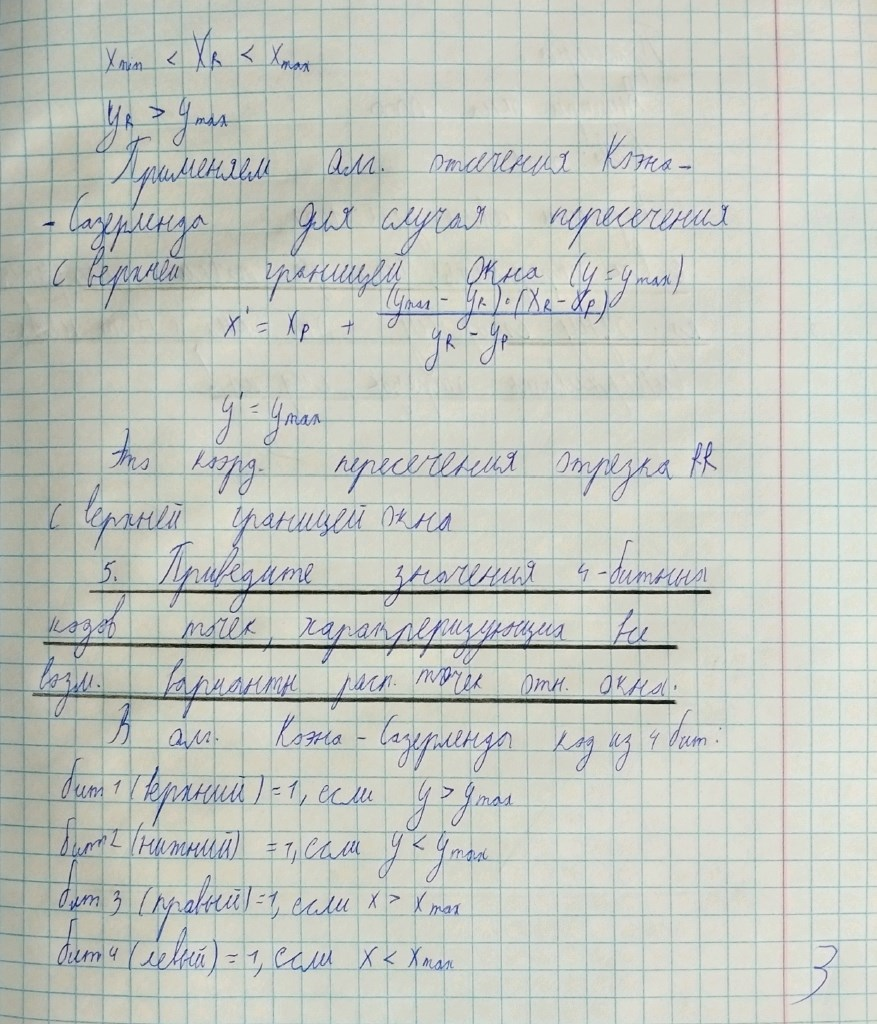 x_min < x_R < x_max
y_R > y_max
Применяем алг. отсечения Коэна-
-Сазерленда для случая пересечения
с верхней границей окна (y = y_max)
x' = x_P + (y_max - y_R)·(x_R - x_P) / (y_R - y_P)
y' = y_max
Это коорд. пересечения отрезка PR
с верхней границей окна
5. Приведите значения 4-битных
кодов точек, характеризующих все
возм. варианты расп. точек отн. окна.
В алг. Коэна-Сазерленда код из 4 бит:
бит 1 (верхний) = 1, если y > y_max
бит 2 (нижний) = 1, если y < y_max
бит 3 (правый) = 1, если x > x_max
бит 4 (левый) = 1, если x < x_max
3